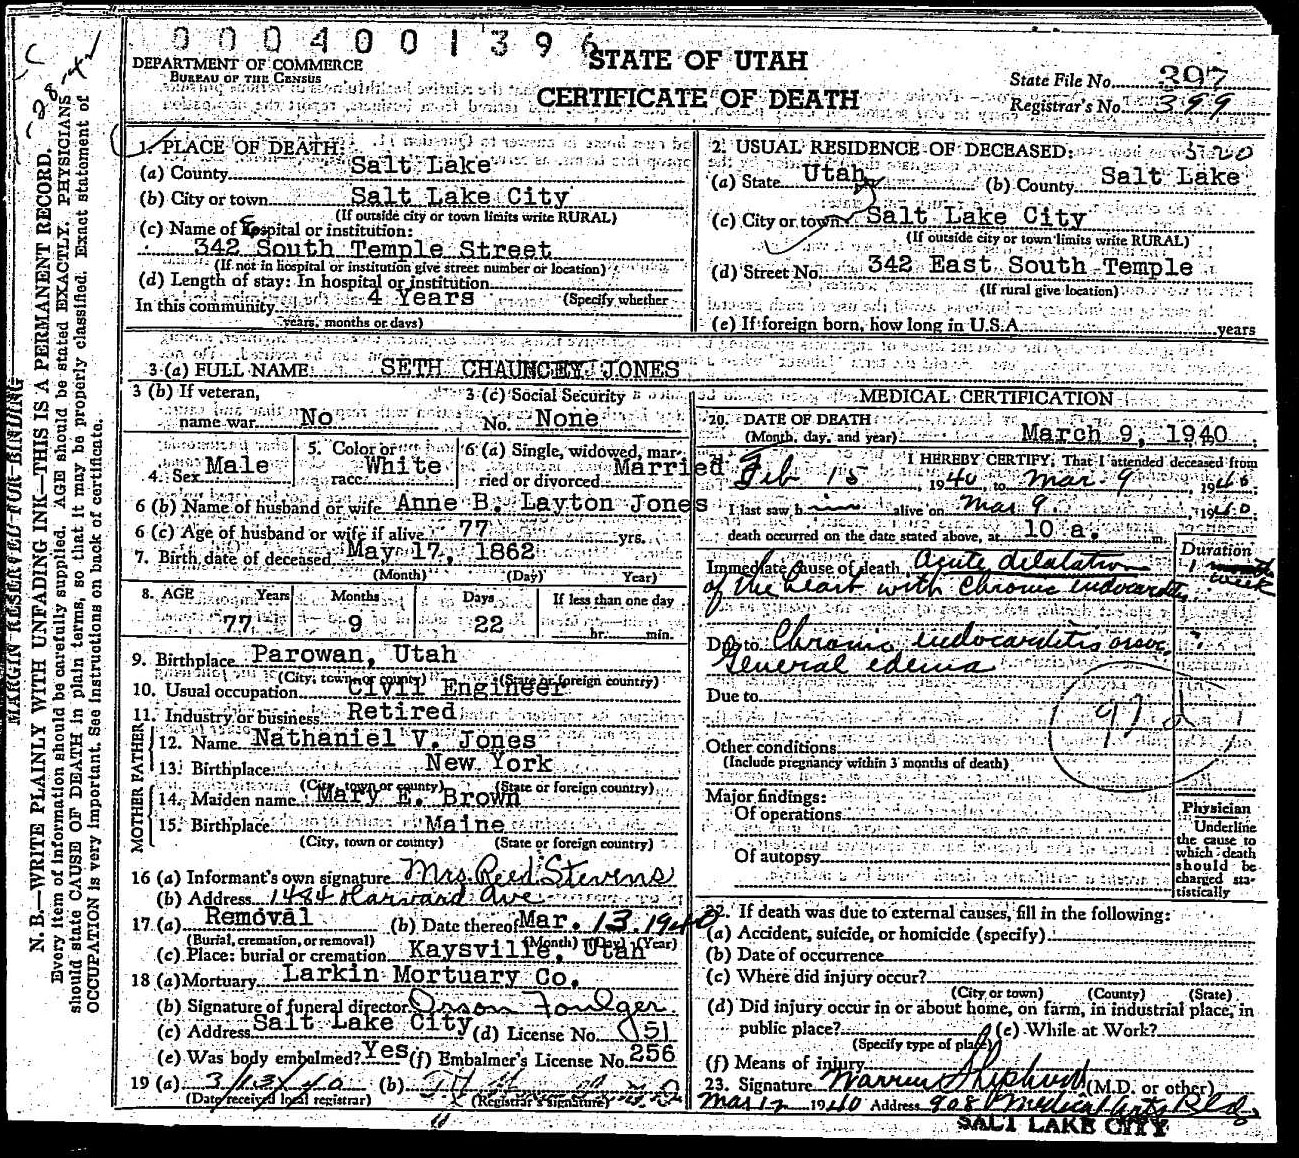 0004001396
STATE OF UTAH
CERTIFICATE OF DEATH
DEPARTMENT OF COMMERCE
BUREAU OF THE CENSUS
State File No. 397
Registrar's No. 399
MARGIN RESERVED FOR BINDING
N. B.—WRITE PLAINLY WITH UNFADING INK—THIS IS A PERMANENT RECORD.
Every item of information should be carefully supplied. AGE should be stated EXACTLY. PHYSICIANS
should state CAUSE OF DEATH in plain terms, so that it may be properly classified. Exact statement of
OCCUPATION is very important. See instructions on back of certificate.
1. PLACE OF DEATH:
(a) County Salt Lake
(b) City or town Salt Lake City
(If outside city or town limits write RURAL)
(c) Name of hospital or institution:
342 South Temple Street
(If not in hospital or institution give street number or location)
(d) Length of stay: In hospital or institution
In this community 4 Years (Specify whether
years, months or days)
2. USUAL RESIDENCE OF DECEASED:
(a) State Utah (b) County Salt Lake
(c) City or town Salt Lake City
(If outside city or town limits write RURAL)
(d) Street No. 342 East South Temple
(If rural give location)
(e) If foreign born, how long in U.S.A. years
3 (a) FULL NAME: SETH CHAUNCEY JONES
3 (b) If veteran,
name war No
3 (c) Social Security
No. None
4. Sex Male
5. Color or
race White
6 (a) Single, widowed, mar-
ried or divorced Married
6 (b) Name of husband or wife Anne B. Layton Jones
6 (c) Age of husband or wife if alive 77 yrs.
7. Birth date of deceased May 17, 1862
(Month) (Day) Year)
8. AGE Years Months Days If less than one day
77 9 22 hr. min.
9. Birthplace Parowan, Utah
(City, town or county) (State or foreign country)
10. Usual occupation Civil Engineer
11. Industry or business Retired
FATHER
12. Name Nathaniel V. Jones
13. Birthplace New York
(City, town or county) (State or foreign country)
MOTHER
14. Maiden name Mary E. Brown
15. Birthplace Maine
(City, town or county) (State or foreign country)
16 (a) Informant's own signature Mrs. Reed Stevens
(b) Address 1484 Harvard Ave
17 (a) Removal (b) Date thereof Mar. 13. 1940
(Burial, cremation, or removal) (Month) (Day) (Year)
(c) Place: burial or cremation Kaysville, Utah
18 (a) Mortuary Larkin Mortuary Co.
(b) Signature of funeral director Orson Foulger
(c) Address Salt Lake City (d) License No. 151
(e) Was body embalmed? Yes (f) Embalmer's License No. 256
19 (a) 3/13/40 (b)
(Date received local registrar) (Registrar's signature)
MEDICAL CERTIFICATION
20. DATE OF DEATH
(Month, day, and year) March 9, 1940
I HEREBY CERTIFY, That I attended deceased from
Feb 15, 1940 to Mar. 9, 1940.
I last saw him alive on Mar 9. 1940.
death occurred on the date stated above, at 10 a. m.
Duration
Immediate cause of death Acute dilatation
of the heart with chronic endocarditis
1 week
Due to Chronic endocarditis
General edema
Due to
92 d
Other conditions
(Include pregnancy within 3 months of death)
Major findings:
Of operations
Of autopsy
Physician
Underline
the cause to
which death
should be
charged sta-
tistically
22. If death was due to external causes, fill in the following:
(a) Accident, suicide, or homicide (specify)
(b) Date of occurrence
(c) Where did injury occur?
(City or town) (County) (State)
(d) Did injury occur in or about home, on farm, in industrial place, in
public place? (e) While at Work?
(Specify type of place)
(f) Means of injury
23. Signature Warren Shepherd (M.D. or other)
Mar 12 1940 Address 908 Medical Arts Bldg
SALT LAKE CITY